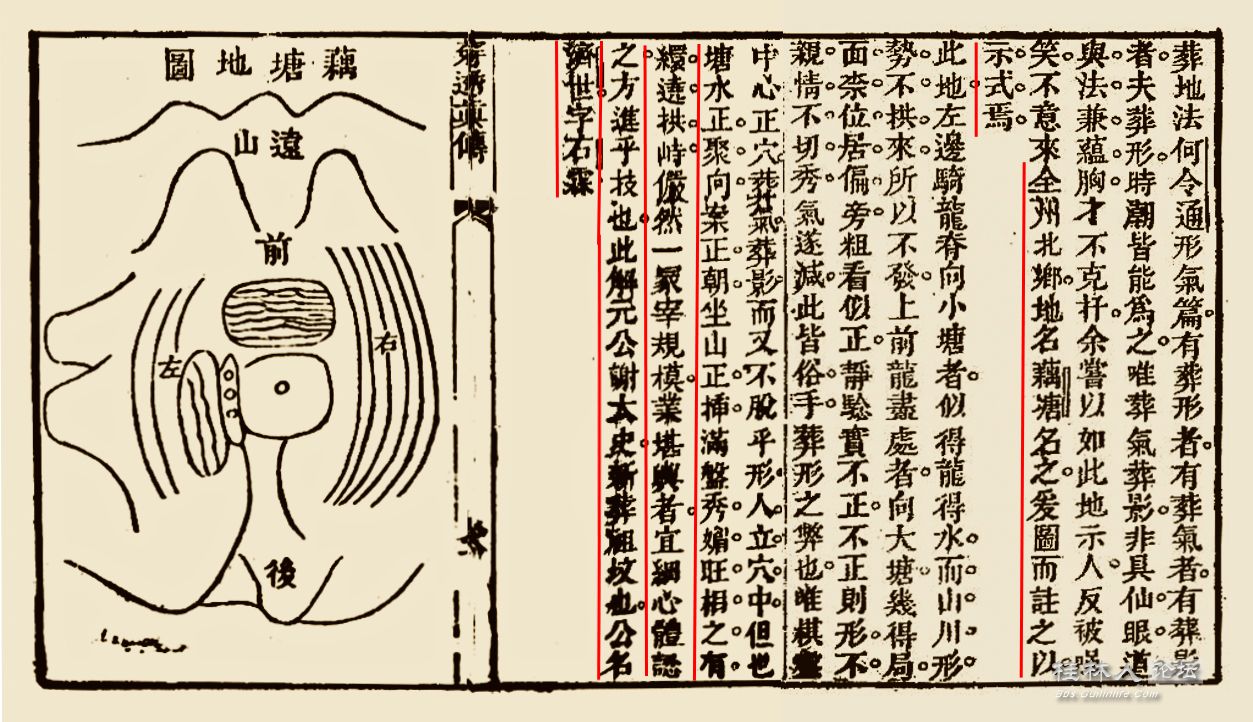 葬地法何令通形氣篇有葬形者有葬氣者有葬影
者夫葬形時潮皆能爲之唯葬氣葬影非具仙眼道
與法兼蘊胸才不克扞余嘗以如此地示人反被
笑不意來全州北鄉地名藕塘名之爰圖而註之以
示式焉
此地左邊騎龍脊向小塘者似得龍得水而山川形
勢不拱來所以不發上前龍盡處者向大塘幾得局
面柰位居偏旁粗看似正靜騐實不正不正則形不
親情不切秀氣遂減此皆俗手葬形之弊也唯棋盤
中心正穴葬氣葬影而又不脫乎形人立穴中但也
塘水正聚向案正朝坐山正揷滿盤秀媚旺相之有
纏遶拱峙儼然一冡宰規模業堪輿者宜細心體認
之方進乎技也此解元公謝太史新葬祖坟也公名
濟世字石霖
藕塘地圖
遠山
前
左
右
後
桂林人论坛